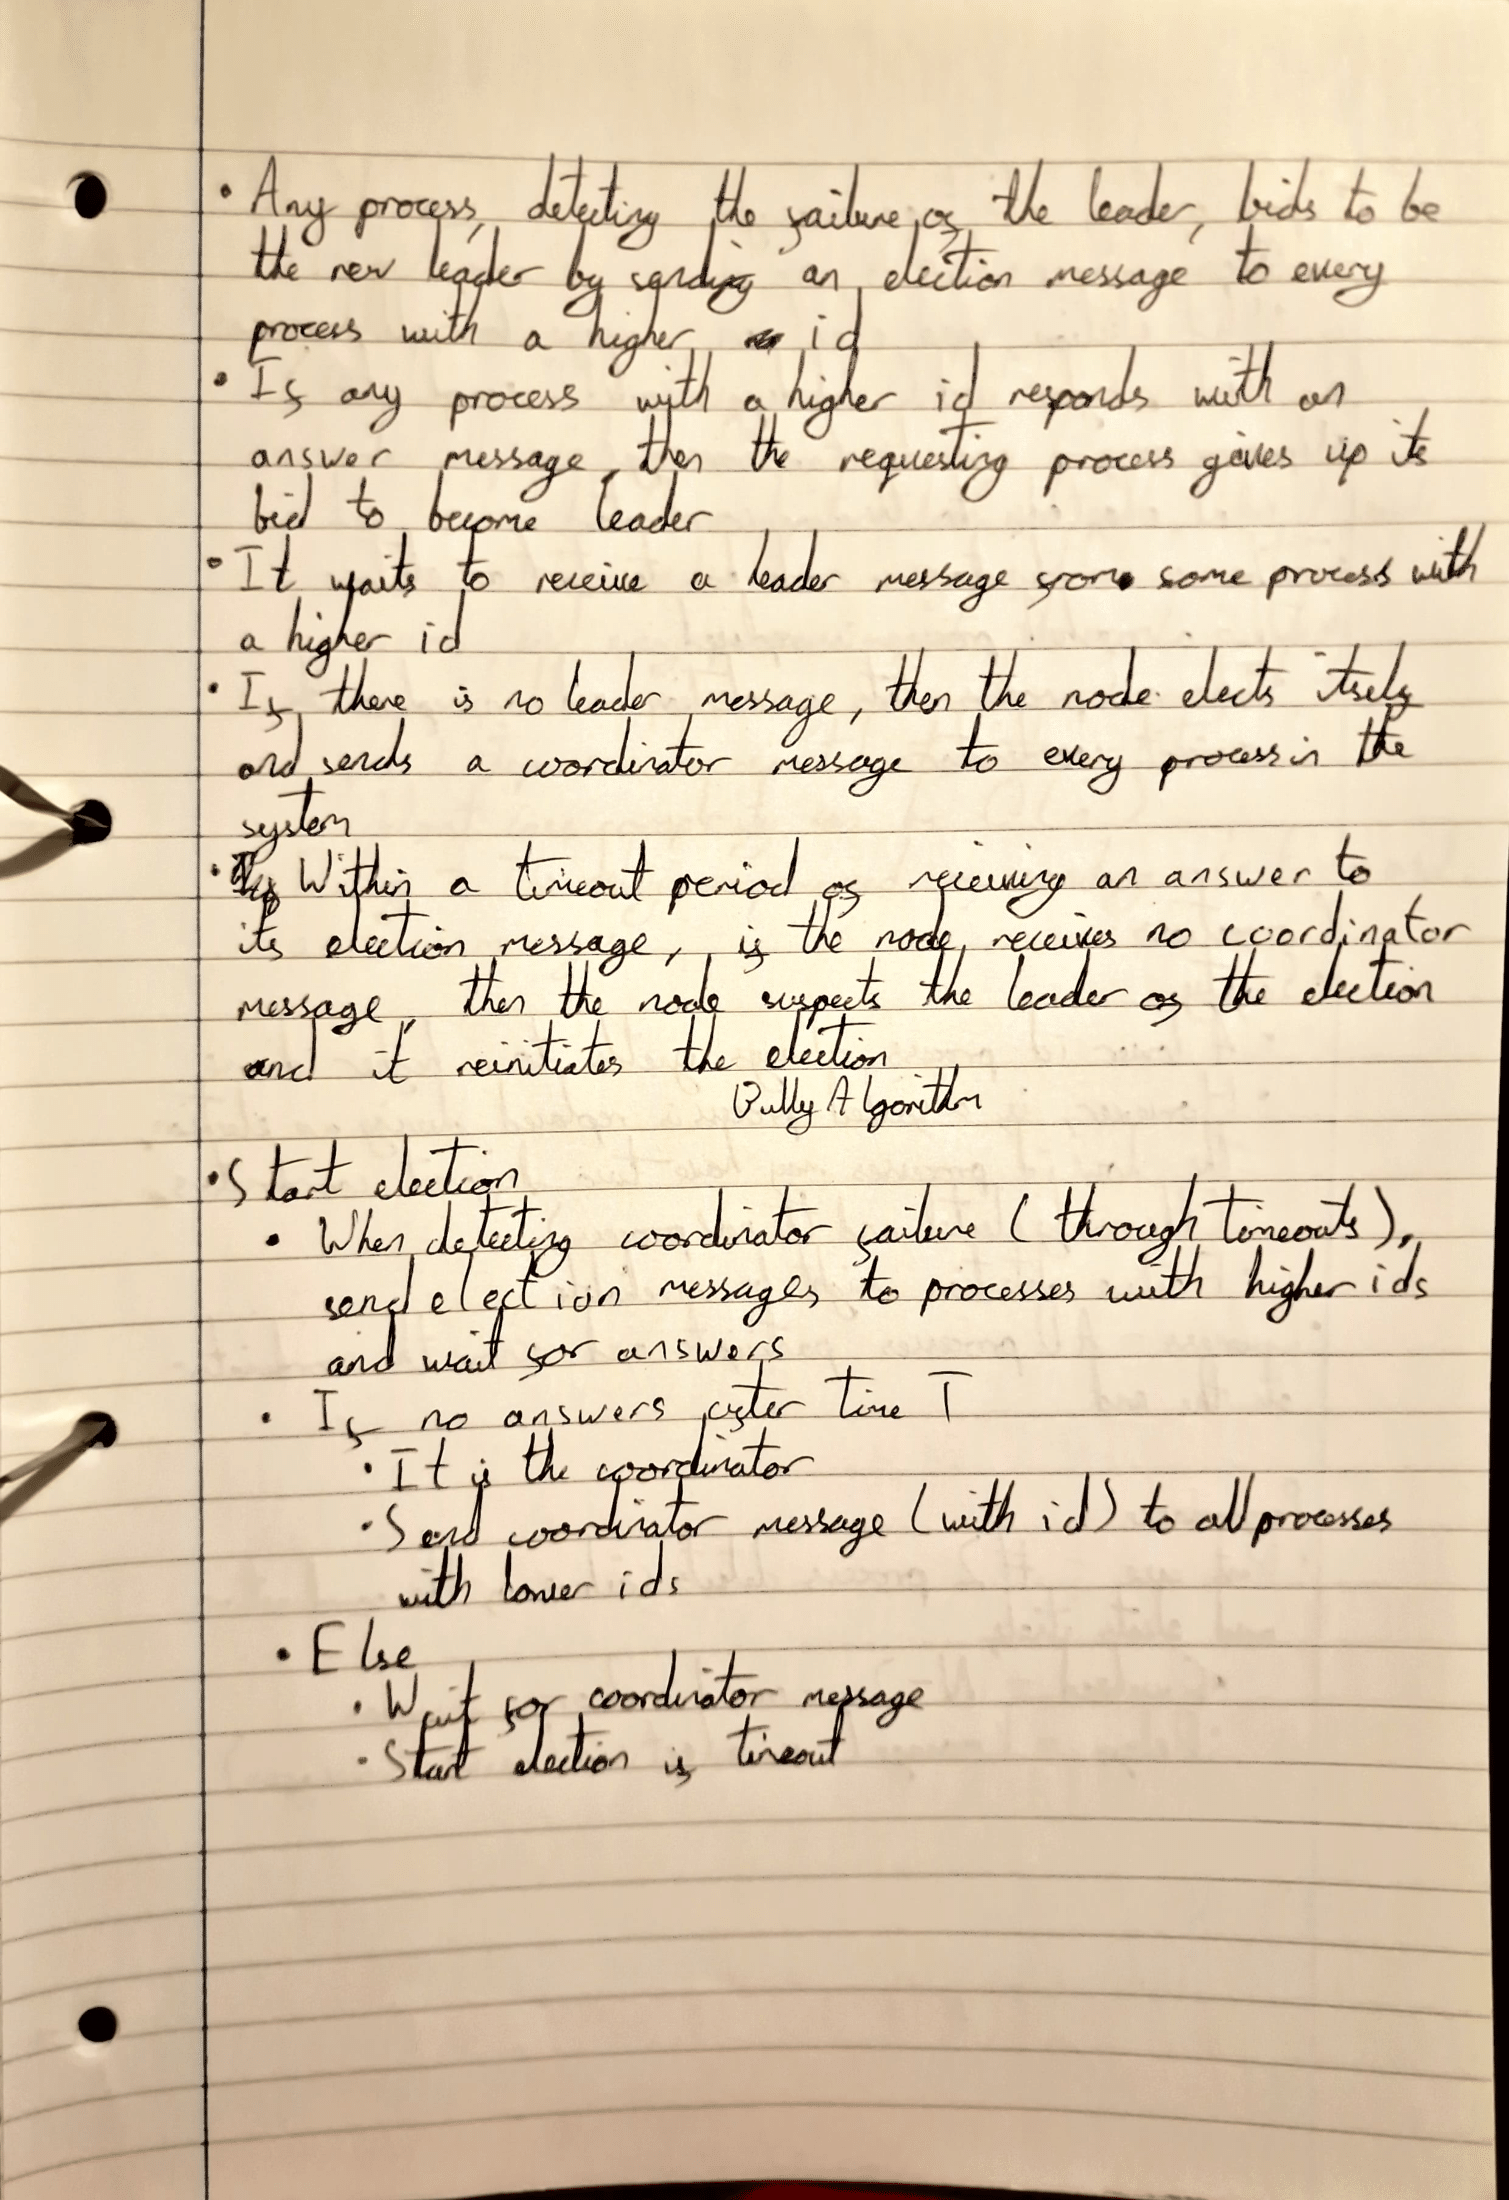 • Any process, detecting the failure of the leader, bids to be
the new leader by sending an election message to every
process with a higher id
• If any process with a higher id responds with an
answer message, then the requesting process gives up its
bid to become leader
• It waits to receive a leader message from some process with
a higher id
• If there is no leader message, then the node elects itself
and sends a coordinator message to every process in the
system
• Within a timeout period of receiving an answer to
its election message, if the node receives no coordinator
message, then the node suspects the leader of the election
and it reinitiates the election
Bully Algorithm
• Start election
• When detecting coordinator failure (through timeouts),
send election messages to processes with higher ids
and wait for answers
• If no answers after time T
• It is the coordinator
• Send coordinator message (with id) to all processes
with lower ids
• Else
• Wait for coordinator message
• Start election if timeout